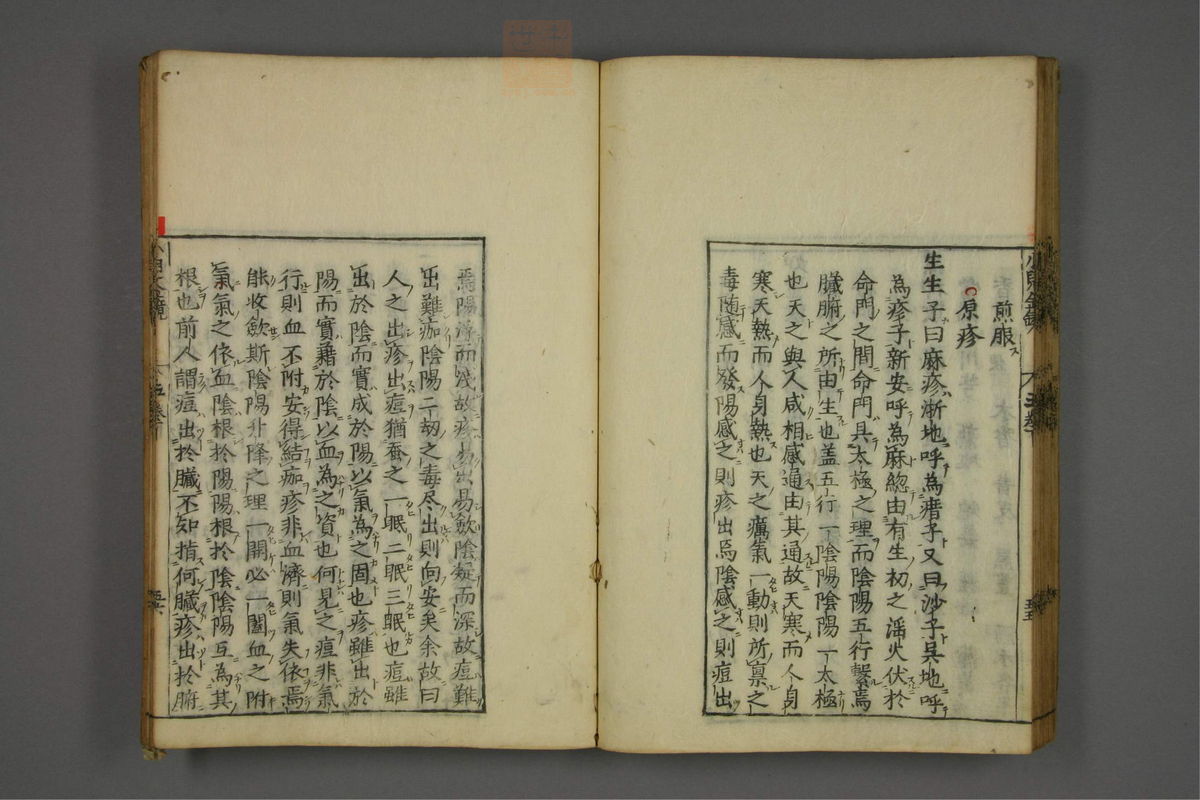 煎服
原疹
生生子曰麻疹浙地呼為瘄子又曰沙子吳地呼
為疹子新安呼為麻緫由有生初之滛火伏於
命門之間命門具太極之理而陰陽五行繫焉
臟腑之所由生也盖五行一陰陽陰陽一太極
也天之與人咸相感通由其通故天寒而人身
寒天熱而人身熱也天之癘氣一動則所禀之
毒随感而發陽感之則疹出焉陰感之則痘出
焉陽浮而浅故疹易出易歛陰凝而深故痘難
出難痂陰陽二刼之毒尽出則向安矣余故曰
人之出疹出痘猶蚕之一眠二眠三眠也痘雖
出於陰而實成於陽以氣為之固也疹雖出於
陽而實藉於陰以血為之資也何見之痘非氣
行則血不附安得結痂疹非血濟則氣失依焉
能收歛斯陰陽升降之理一開必一闔血之附
氣氣之依血陰根於陽陽根於陰陰陽互為其
根也前人謂痘出於臟不知指何臟疹出於腑
五卷
五卷